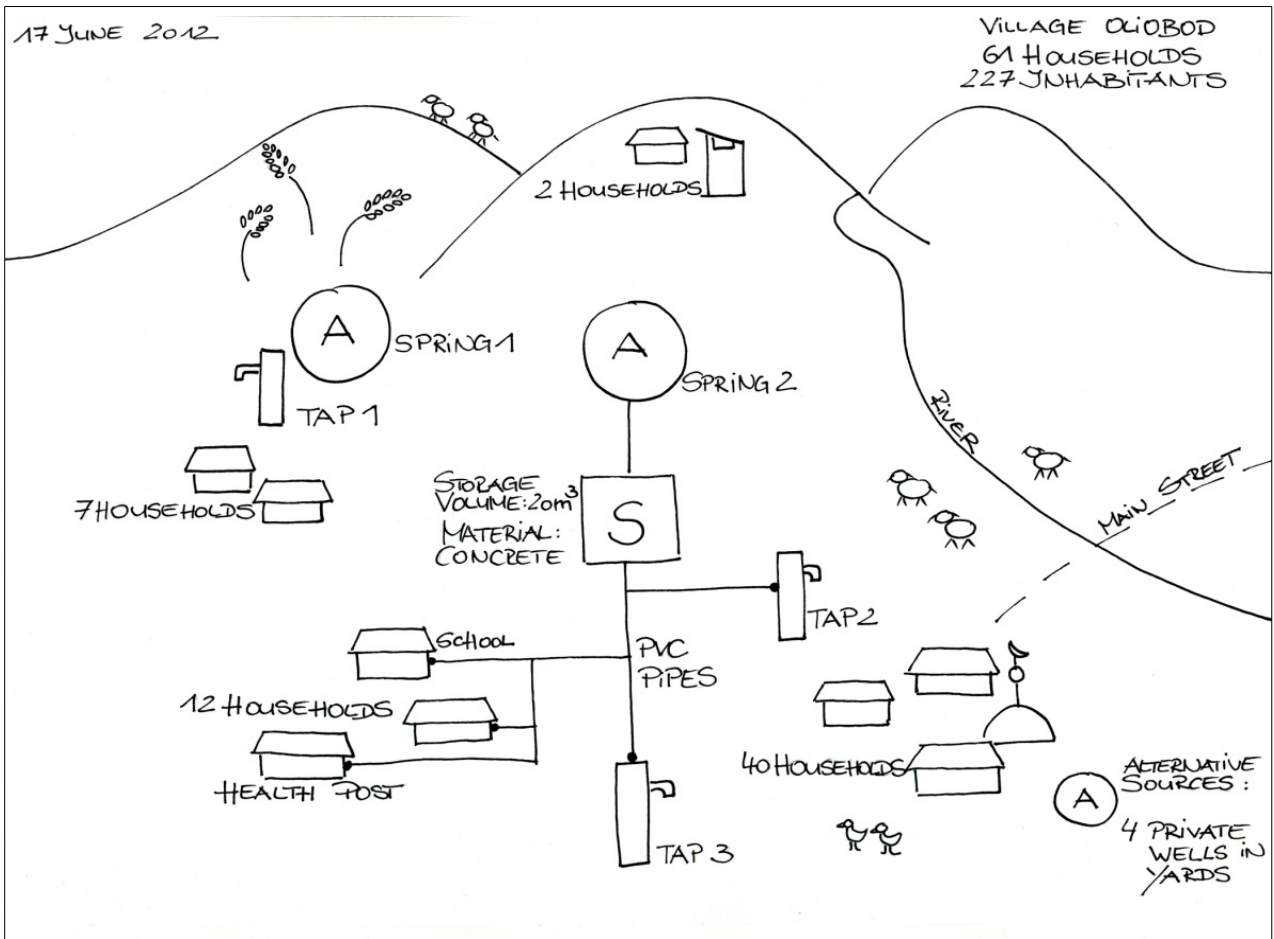 17 JUNE 2012
VILLAGE OLIOBOD
61 HOUSEHOLDS
227 INHABITANTS
2 HOUSEHOLDS
A
SPRING 1
A
SPRING 2
TAP 1
RIVER
MAIN STREET
7 HOUSEHOLDS
STORAGE
VOLUME: 20m³
MATERIAL:
CONCRETE
S
TAP 2
SCHOOL
PVC
PIPES
12 HOUSEHOLDS
HEALTH POST
40 HOUSEHOLDS
TAP 3
A
ALTERNATIVE
SOURCES:
4 PRIVATE
WELLS IN
YARDS